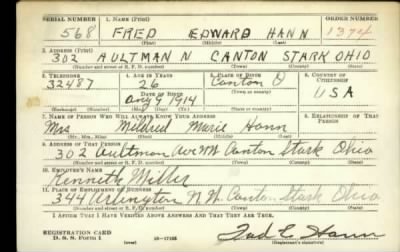 SERIAL NUMBER 1. NAME (Print) ORDER NUMBER
568 FRED EDWARD HANN 1374
(First) (Middle) (Last)
2. ADDRESS (Print)
302 AULTMAN N CANTON STARK OHIO
(Number and street or R. F. D. number) (Town) (County) (State)
3. TELEPHONE 4. AGE IN YEARS 5. PLACE OF BIRTH 6. COUNTRY OF CITIZENSHIP
32487 26 Canton O
DATE OF BIRTH (Town or county)
Aug 9 1914 USA
(Exchange) (Number) (Mo.) (Day) (Yr.) (State or country)
7. NAME OF PERSON WHO WILL ALWAYS KNOW YOUR ADDRESS 8. RELATIONSHIP OF THAT PERSON
Mrs Mildred Marie Hann
(Mr., Mrs., Miss) (First) (Middle) (Last)
9. ADDRESS OF THAT PERSON
302 Aultman Ave NW Canton Stark Ohio
(Number and street or R. F. D. number) (Town) (County) (State)
10. EMPLOYER'S NAME
Kenneth Miller
11. PLACE OF EMPLOYMENT OR BUSINESS
344 Arlington N.W. Canton Stark Ohio
(Number and street or R. F. D. number) (Town) (County) (State)
I AFFIRM THAT I HAVE VERIFIED ABOVE ANSWERS AND THAT THEY ARE TRUE.
REGISTRATION CARD
D. S. S. Form 1 (over) 16—17105 Fred E. Hann
(Registrant's signature)